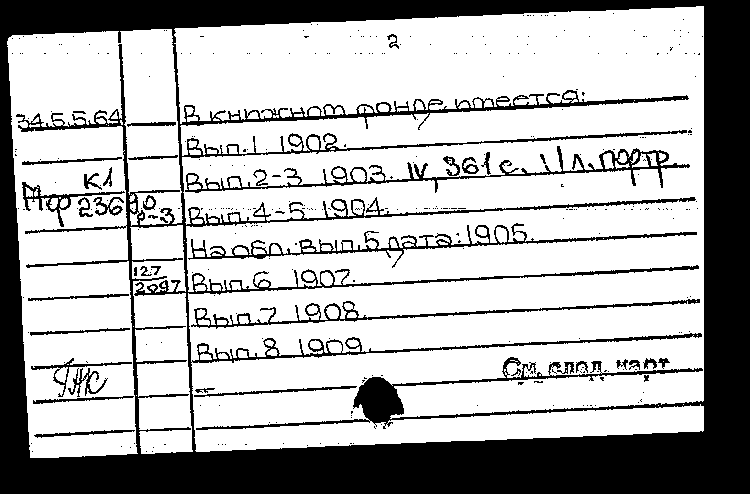 2
34.5.5.64 В книжном фонде имеется:
Вып.1 1902.
К1 Вып.2-3 1903. IV, 361 с. 1 л. портр.
Мф 236 Вып.4-5 1904.
На обл. вып.5 дата: 1905.
127
2097 Вып.6 1907.
Вып.7 1908.
Вып.8 1909.
См. след. карт